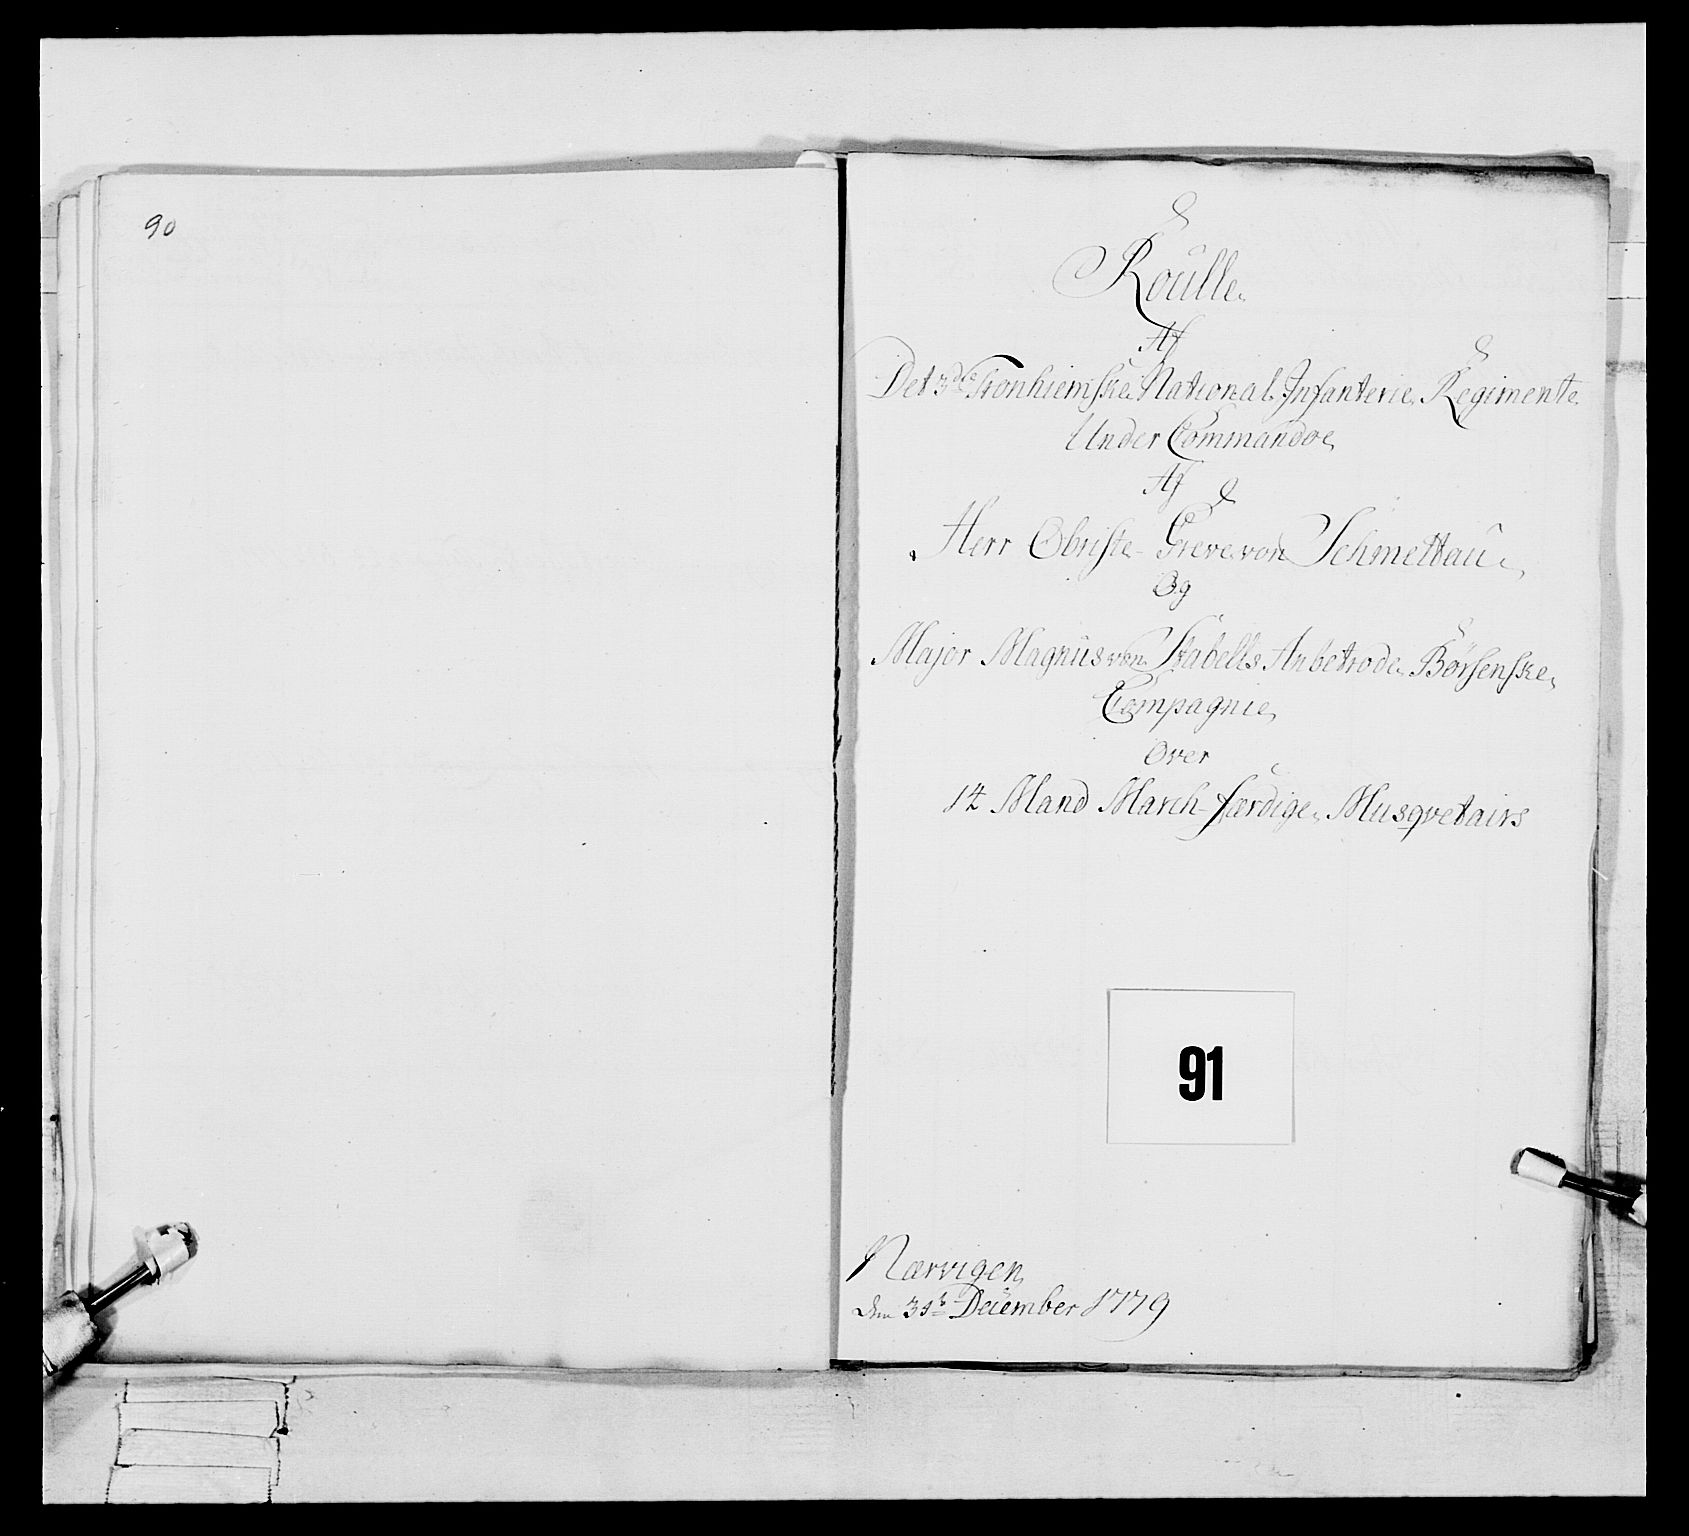 90
Roulle
Af
Det 3de Tronhiemske National Infanterie Regimente
Under Commandoe
Af
Herr Obriste Greve von Schmettau
Og
Major Magnus von Stabells Anbetrode Børsenske
Compagnie
Over
14 Mand March-færdige Musqvetairs
91
Nærvigen
den 31te December 1779